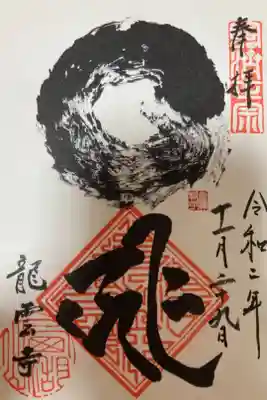 奉拝
令和二年
十一月二九日
龍
龍雲寺